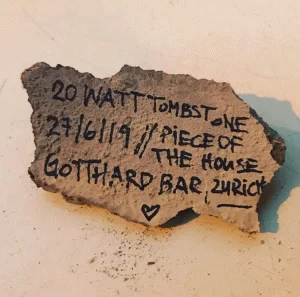 20 WATT TOMBSTONE
27/6/19 // PIECE OF
THE HOUSE
GOTTHARD BAR, ZURICH
♡